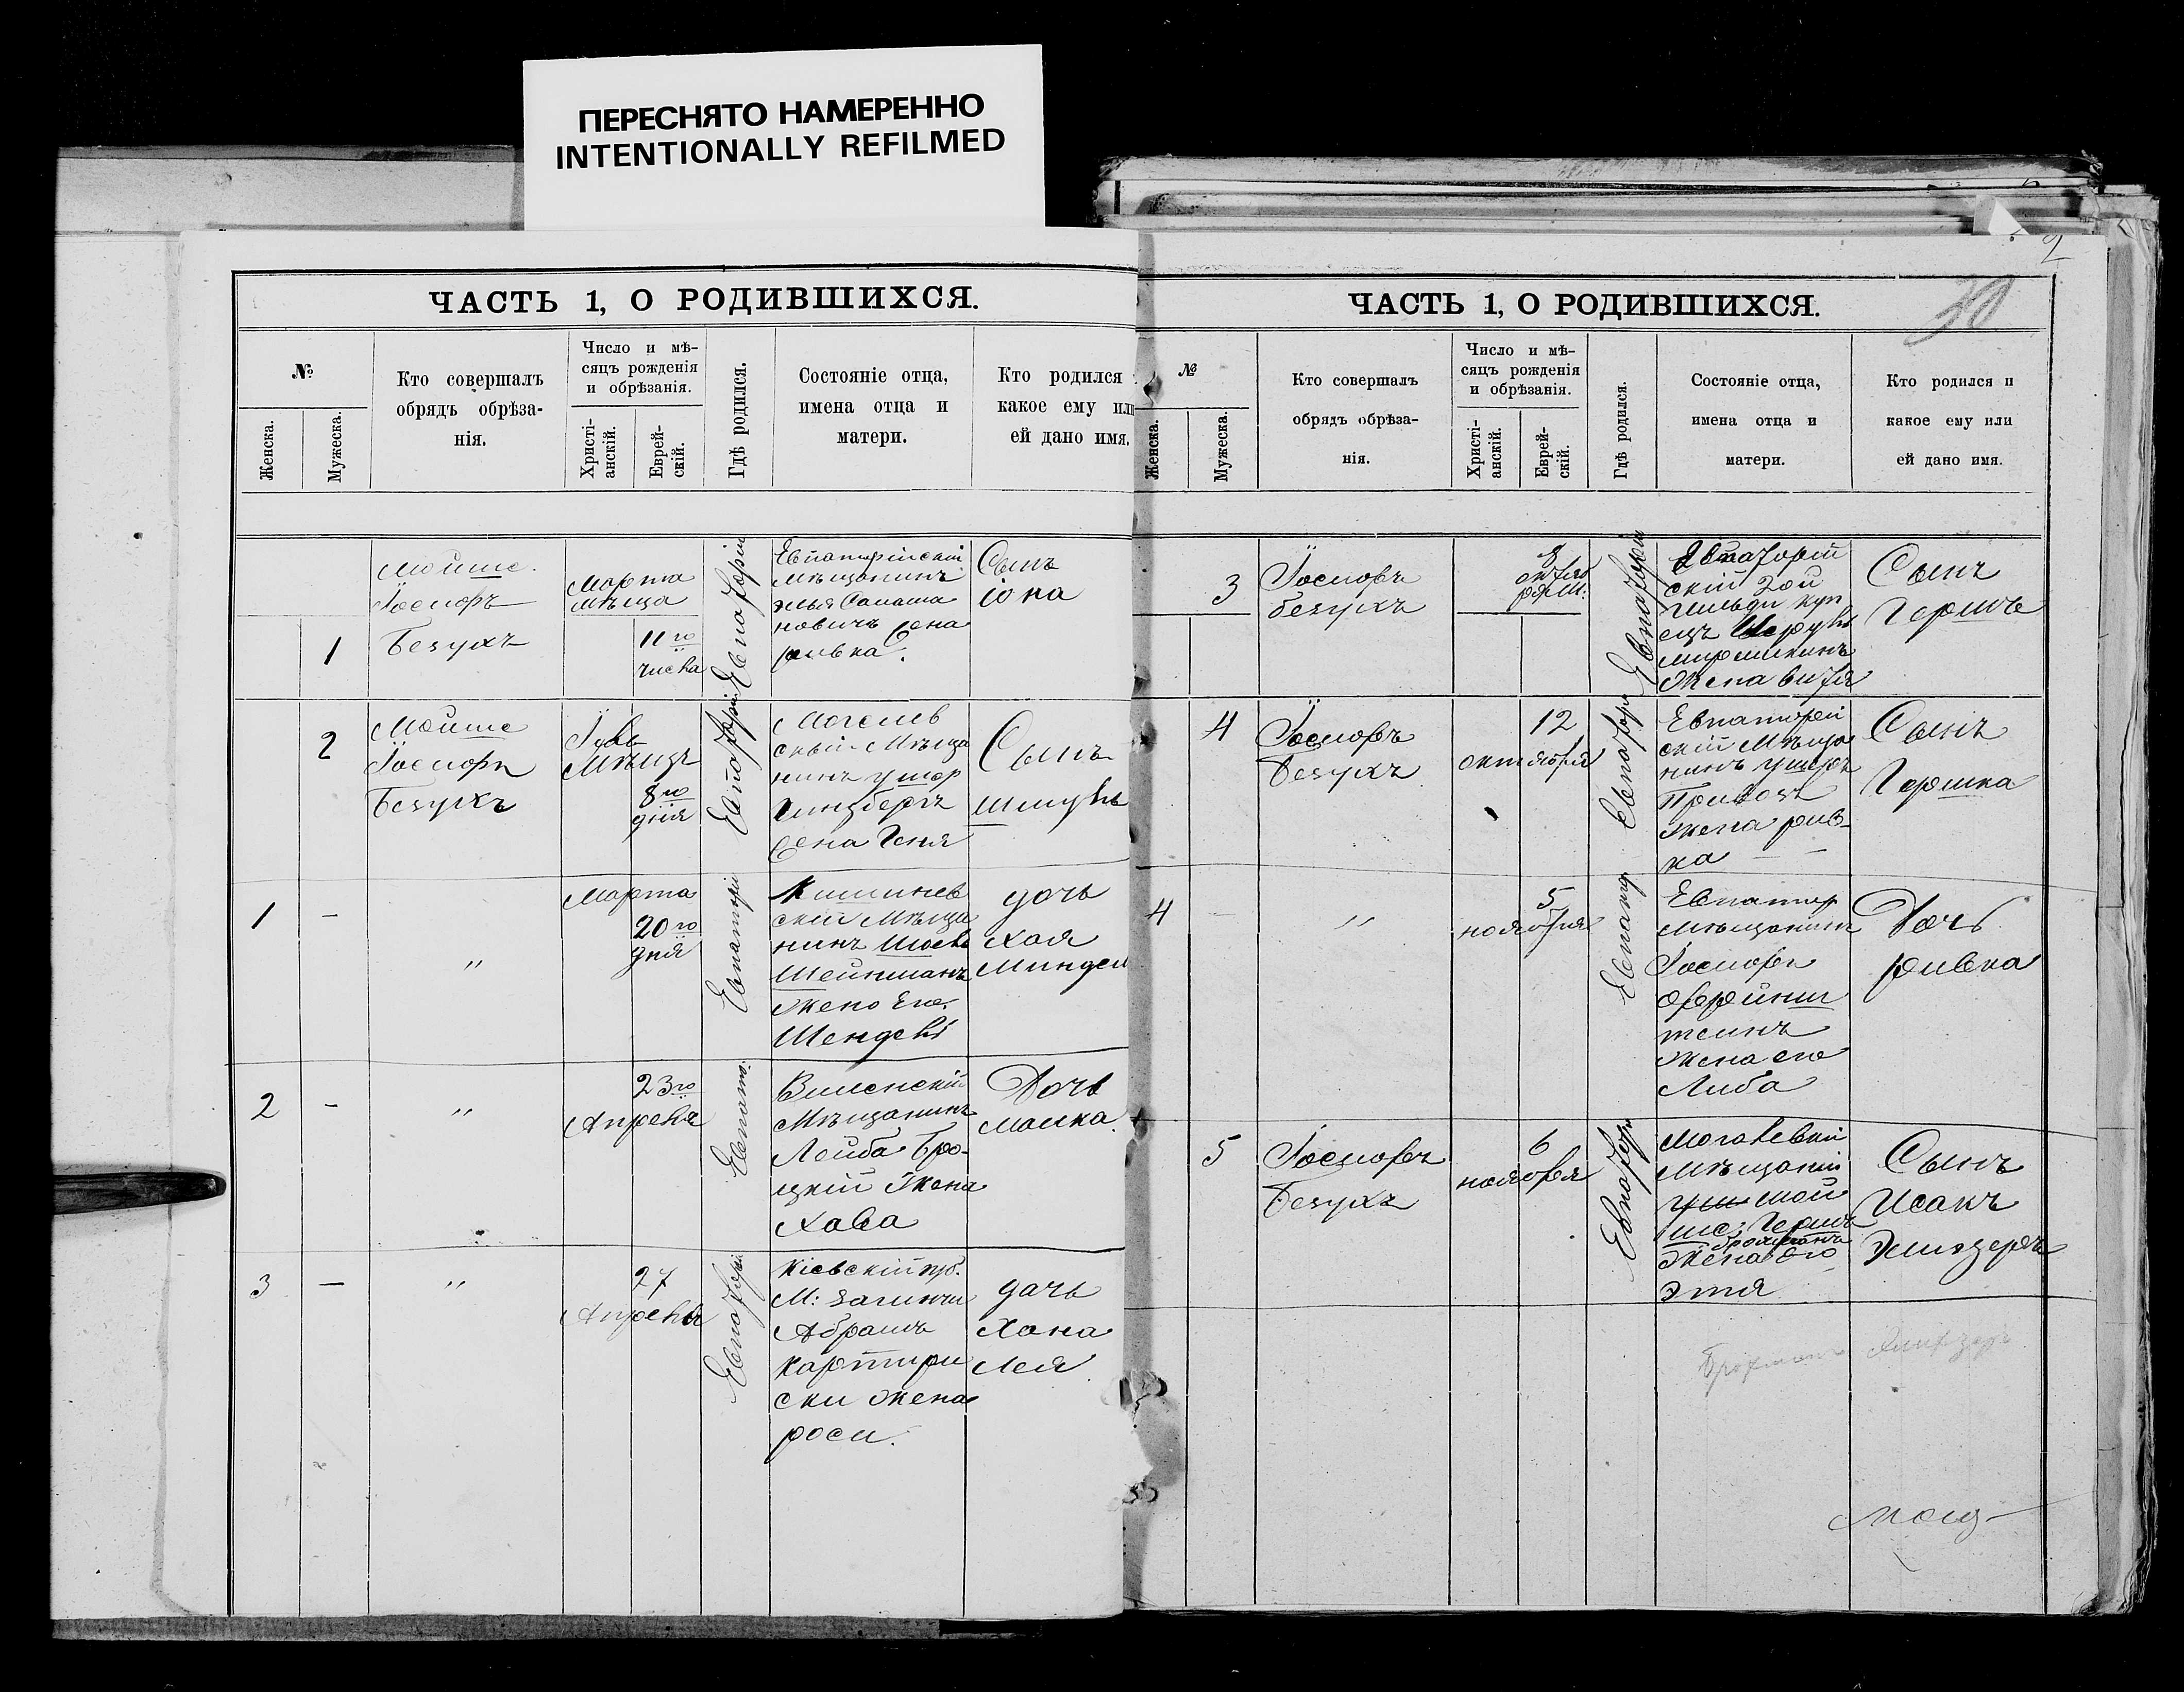 ПЕРЕСНЯТО НАМЕРЕННО
INTENTIONALLY REFILMED
ЧАСТЬ 1, О РОДИВШИХСЯ.
№
Женска.
Мужеска.
Кто совершалъ
обрядъ обрѣза-
нія.
Число и мѣ-
сяцъ рожденія
и обрѣзанія.
Христі-
анскій.
Еврей-
скій.
Гдѣ родился.
Состояніе отца,
имена отца и
матери.
Кто родился
какое ему или
ей дано имя.
1
Мойше
Іосифъ
Безухъ
Марта
мѣца
11го
числа
Евпаторіи
Евпаторійскій
Мѣщанинъ
новичъ
ривка.
Сынъ
іона
2
Мойше
Іосифъ
Безухъ
Мѣсцъ
8го
дня
Евпаторіи
Могилев
скій Мѣща
нинъ ушер
гинзбергъ
Геня
Сынъ
шмуль
1
-
"
Марта
20го
дня
Евпаторіи
Кишинев
скій Мѣща
нинъ
Шейнманъ
жено Его
Шендель
дочь
хая
Миндел
2
-
"
23го
Апреля
Евпато.
Виленскій
Мѣщанинъ
Лейба Бро-
цкій Жена
Хава
Дочь
малка.
3
-
"
27
Апреля
Евпаторіи
Кіевскій губ.
М:
Абрамъ
жена
роси.
дочь
Хана
Лея
2
30
ЧАСТЬ 1, О РОДИВШИХСЯ.
№
Женска.
Мужеска.
Кто совершалъ
обрядъ обрѣза-
нія.
Число и мѣ-
сяцъ рожденія
и обрѣзанія.
Христі-
анскій.
Еврей-
скій.
Гдѣ родился.
Состояніе отца,
имена отца и
матери.
Кто родился и
какое ему или
ей дано имя.
3
Іосифъ
безухъ
Евпаторіи
Евпаторій
скій 2ой
гильди куп
ецъ
Жена витя
Сынъ
Гершъ
4
Іосифъ
Безухъ
12
октября
Евпатори
Евпаторей
скій Мѣща
нинъ ушеръ
Привозъ
жена рив-
ка
Сынъ
Гершка
4
-
"
5
ноября
Евпатор
Евпатор
мѣщанинъ
Іосифъ
жена его
Либа
Дочь
ривка
5
Іосифъ
Безухъ
6
ноября
Евпатор
Могалевкій
мѣщаній
мой
ше: Гершъ
Жена его
Этя
Сынъ
Исакъ
Элиэзеръ